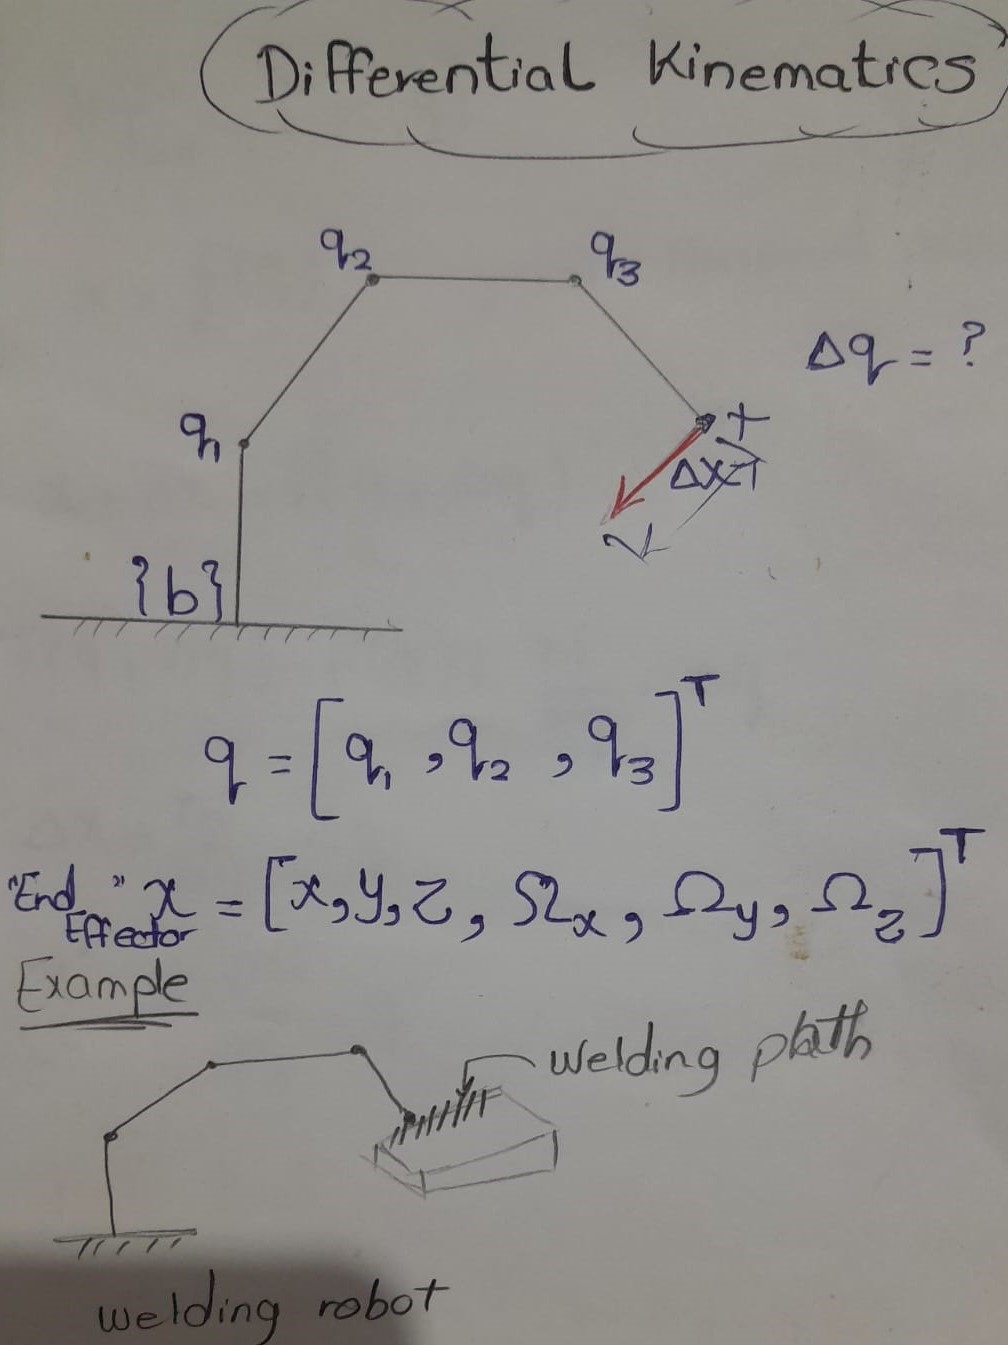 Differential Kinematics
q2 q3
Δq = ?
q1
x
Δx
{b}
q = [q1, q2, q3]^T
"End Effector" x = [x, y, z, Ωx, Ωy, Ωz]^T
Example
welding path
welding robot